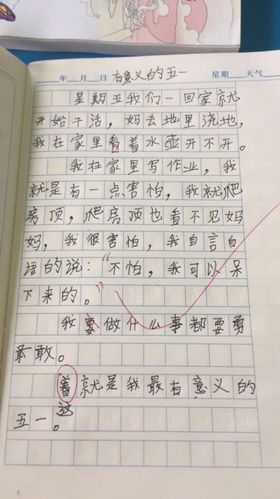 年 月 日 有意义的五一 星期 天气
星期五我们一回家就
开始干活，妈去地里浇地，
我在家里看着水壶开不开。
我在家里写作业，我
就是有一点害怕，我就爬
房顶，爬房顶也看不见妈
妈，我很害怕，我自言自
语的说：“不怕，我可以呆
下来的。”
我要做什么事都要勇
敢敢。
着就是我最有意义的
这
五一。